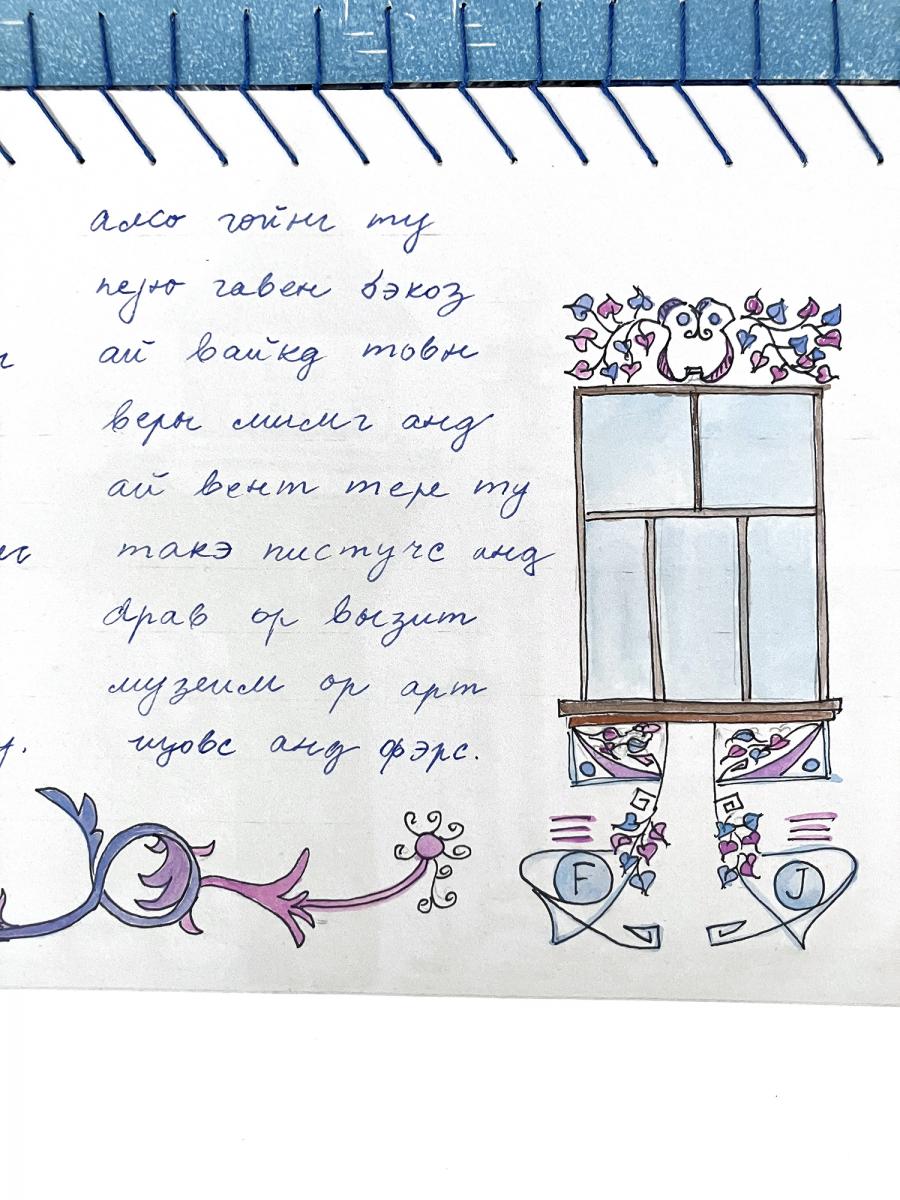 алсо гоинг ту
гавен бэкоз
ай вайкд товн
веры мимг анд
ай вент тере ту
такэ пистучс анд
драв ор вызит
музеим ор арт
шовс анд фэрс.
F J